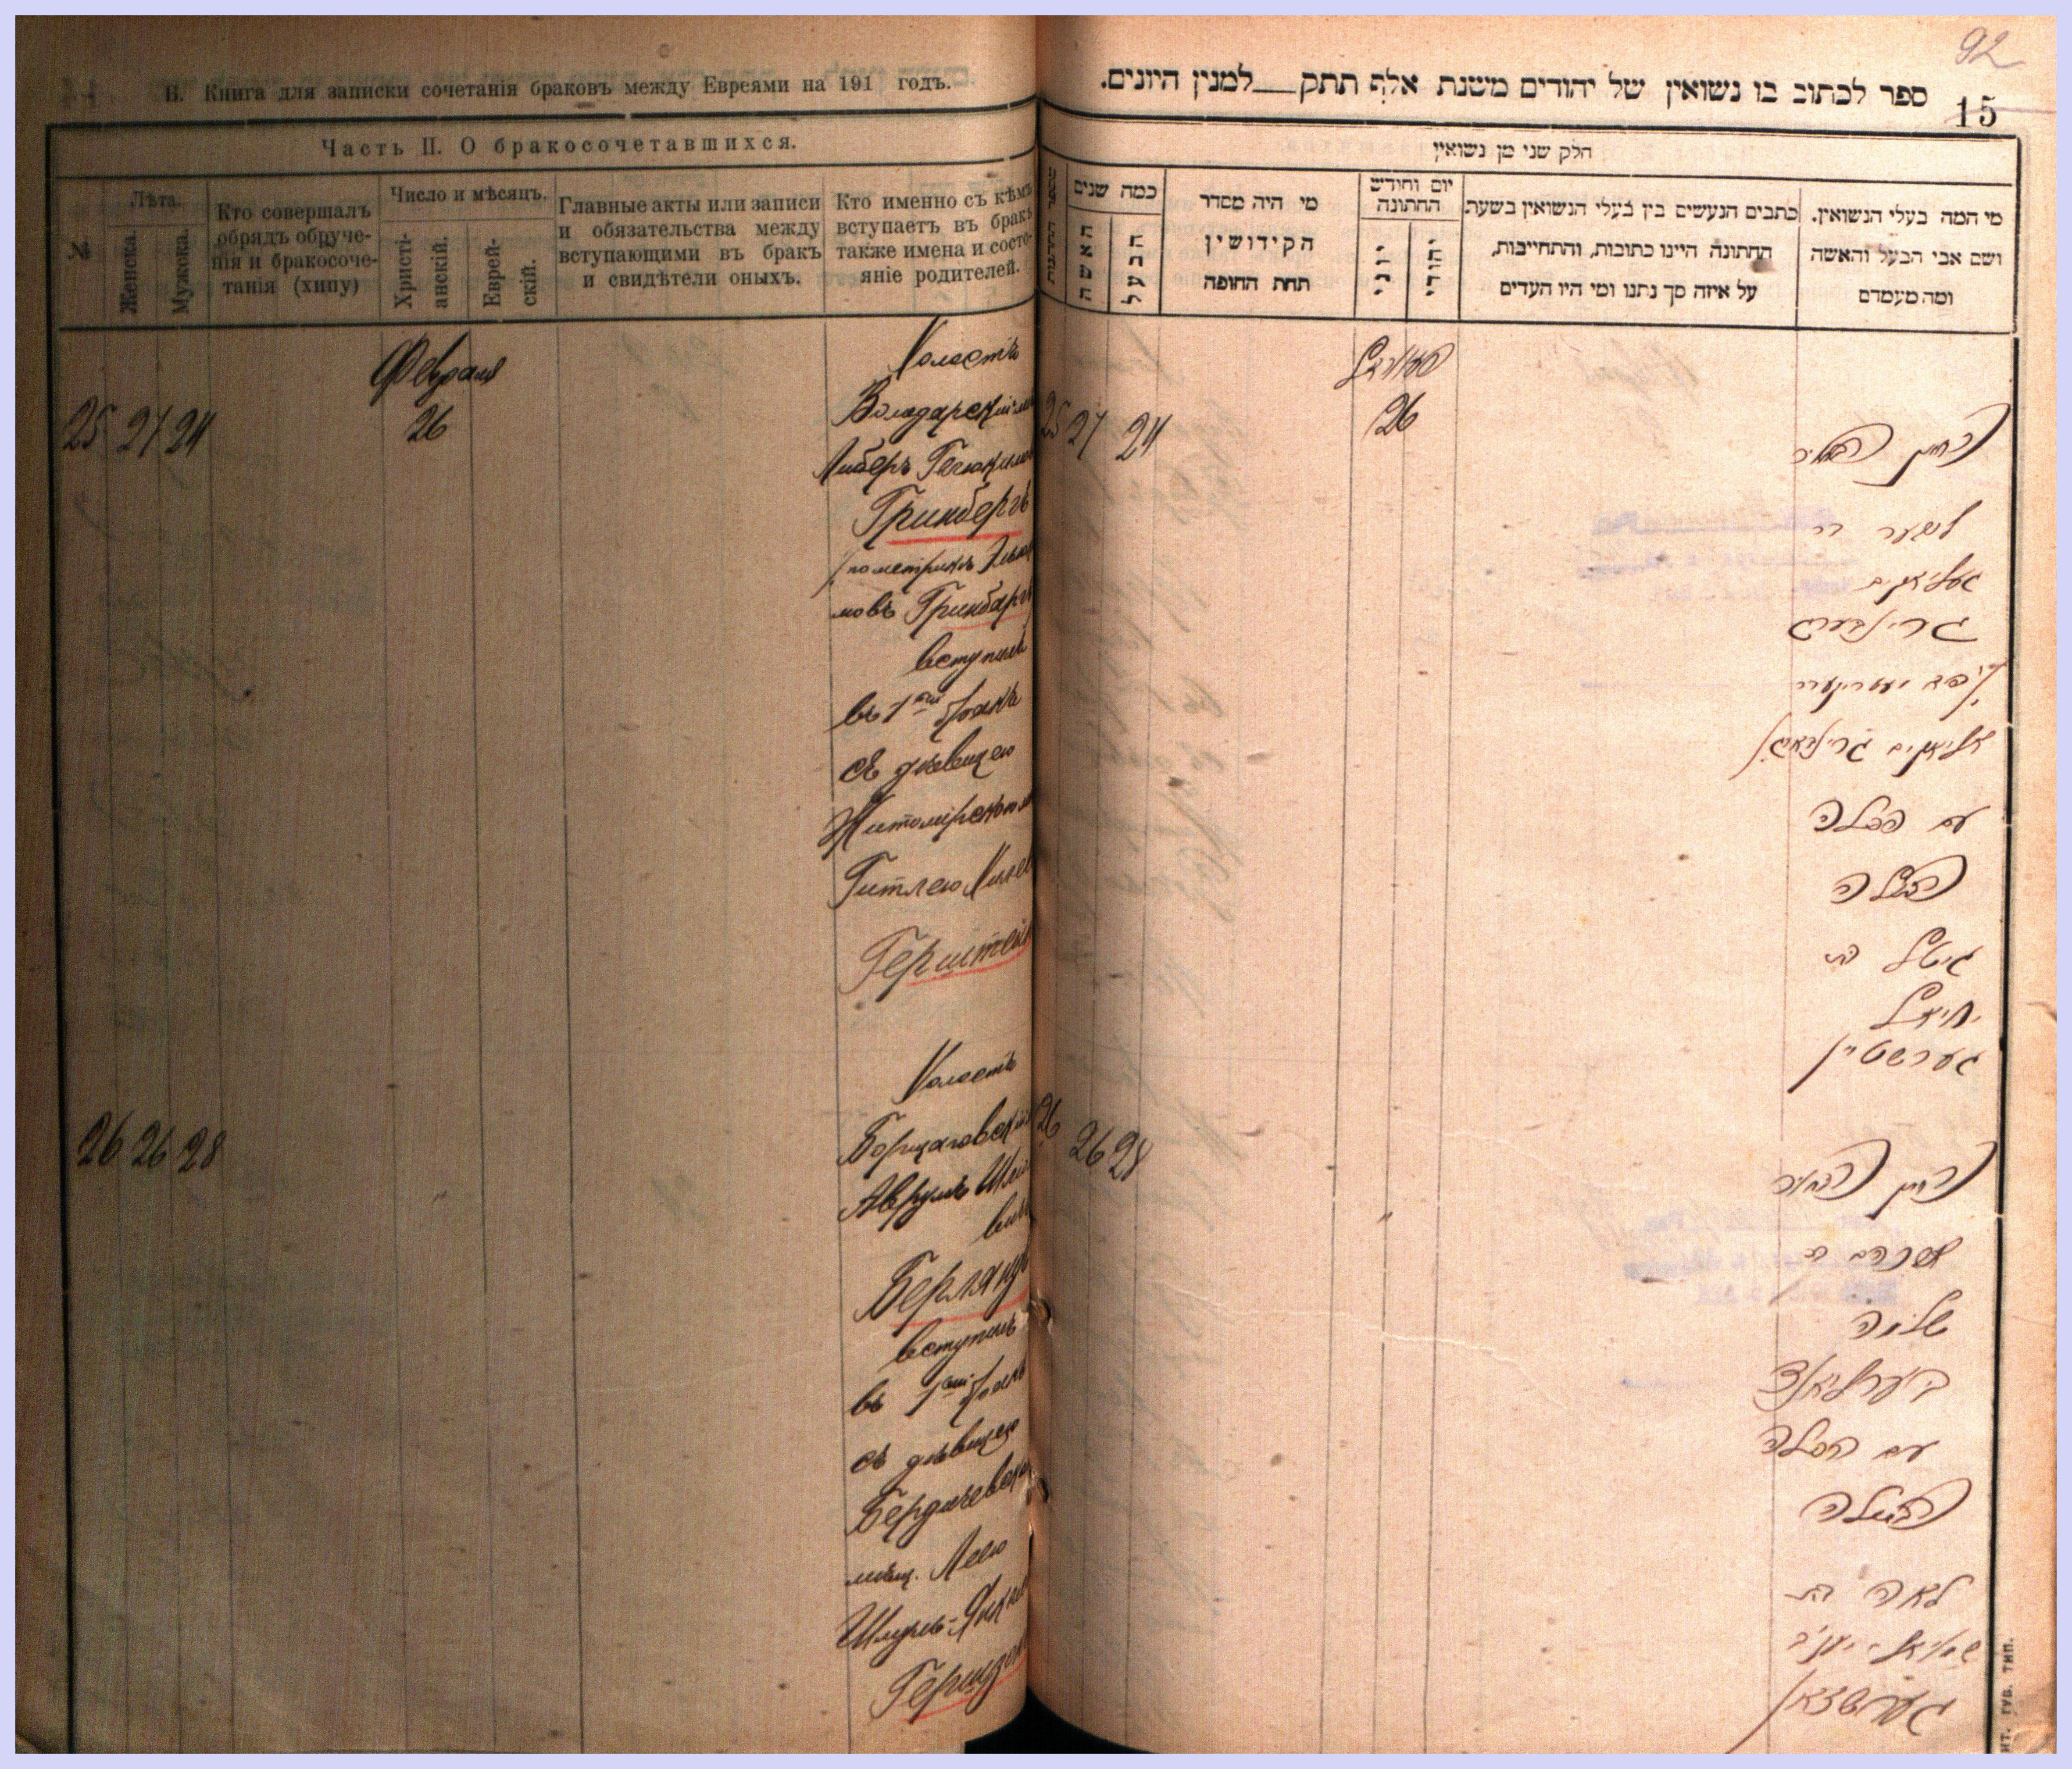 Б. Книга для записки сочетанія браковъ между Евреями на 191 годъ.
Часть II. О бракосочетавшихся.
№
Лѣта.
Женска.
Мужска.
Кто совершалъ
обрядъ обруче-
нія и бракосоче-
танія (хипу)
Число и мѣсяцъ.
Христі-
анскій.
Еврей-
скій.
Главные акты или записи
и обязательства между
вступающими въ бракъ
и свидѣтели оныхъ.
Кто именно съ кѣмъ
вступаетъ въ бракъ
также имена и состо-
яніе родителей.
Февраля
25 27 24
26
Холостъ
Володарскій
Либеръ
Гринбергъ
мовъ Гринбаргъ
вступилъ
въ 1 бракъ
съ дѣвицею
Гитлею
Герштейн
26 26 28
Холостъ
Борщаговскій
Аврумъ
Берландъ
вступилъ
въ 1 бракъ
съ дѣвицею
Бердичевск
мѣщ. Леею
Шмуль-Янкел
Герцзон
92
15
ספר לכתוב בו נשואין של יהודים משנת אלף תתק __ למנין היונים.
חלק שני מן נשואין
כמה שנים
האשה
הבעל
מי היה מסדר
הקידושין
תחת החופה
יום וחודש
החתונה
יוני
יהודי
כתבים הנעשים בין בעלי הנשואין בשעת
החתונה היינו כתובות, והתחייבות,
על איזה סך נתנו ומי היו העדים
מי המה בעלי הנשואין.
ושם אבי הבעל והאשה
ומה מעמדם
פעווראל
25 27 24
26
החתן הבחור
ליבער בר
געליאקים
גרינבערג
אליאקים גרינבארג
עם הכלה
הבתולה
גיטל בת
יחיאל
גערשטיין
26 26 28
"
החתן הבחור
אברהם ב
שלמה
בערלאנד
עם הכלה
הבתולה
לאה בת
שמואל יעקב
גערשצאן
ИТ. ГУВ. ТИП.